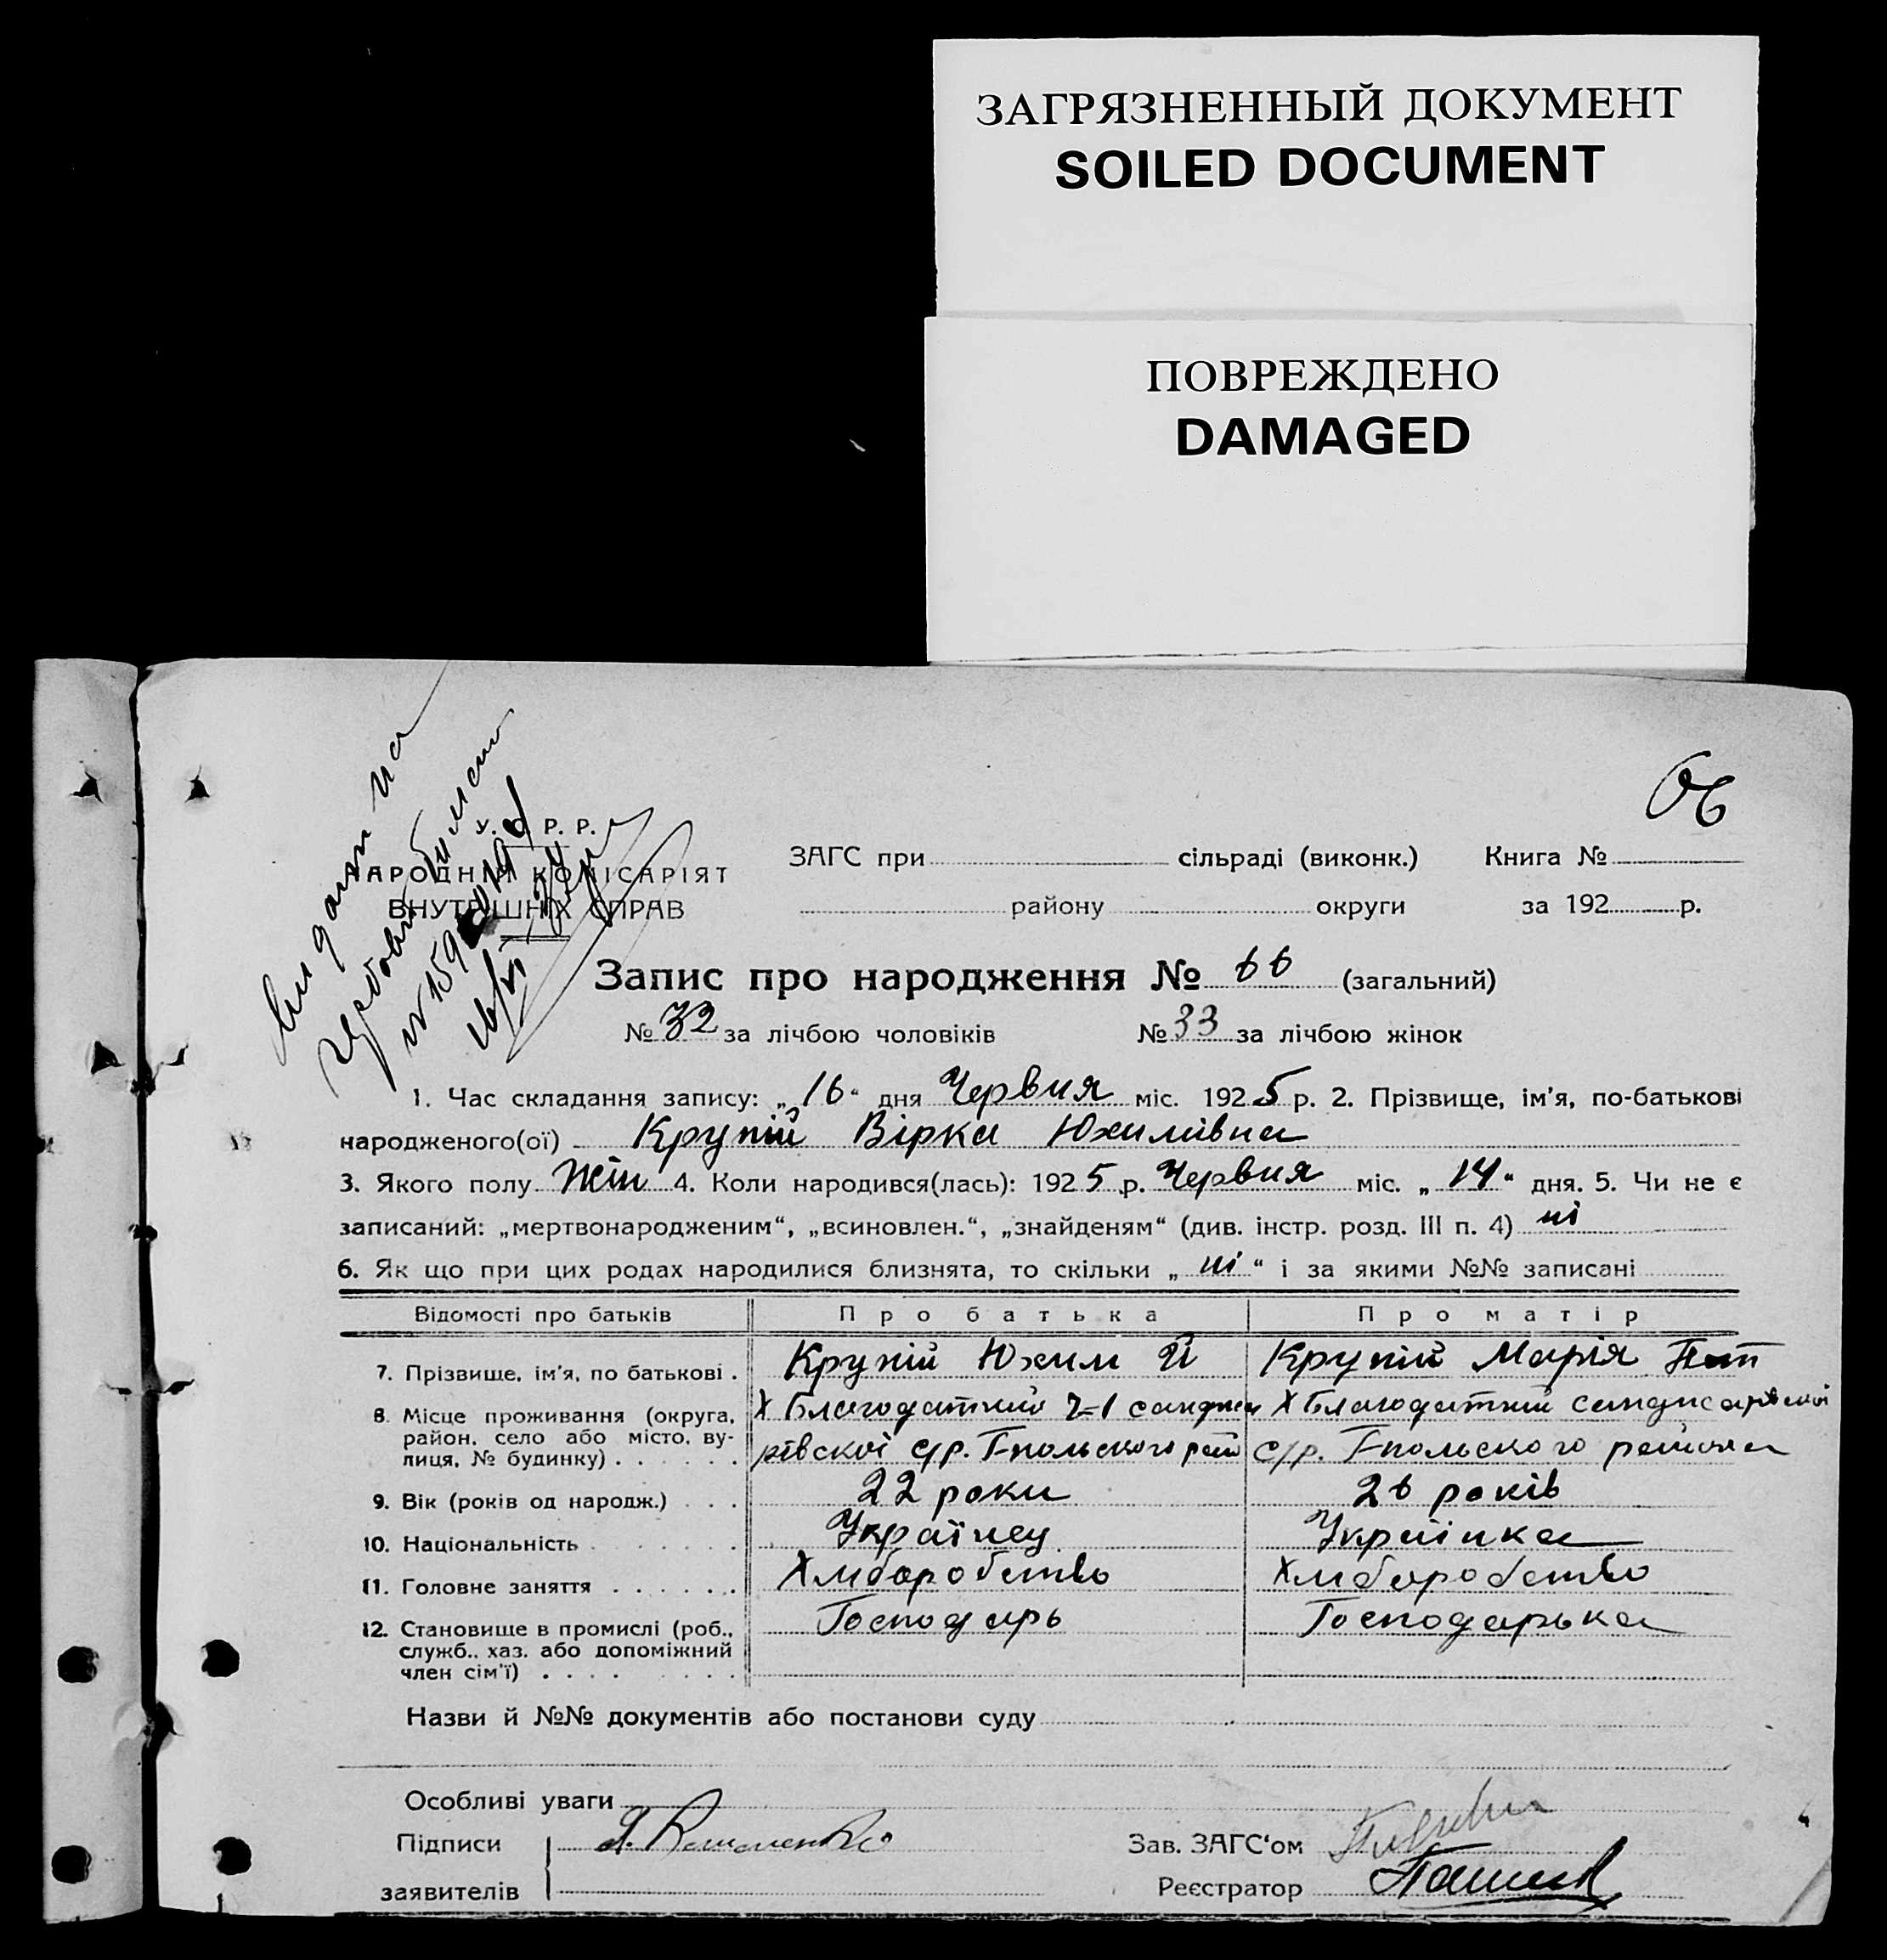 ЗАГРЯЗНЕННЫЙ ДОКУМЕНТ
SOILED DOCUMENT
ПОВРЕЖДЕНО
DAMAGED
У. С. Р. Р.
НАРОДНІЙ КОМІСАРІЯТ
ВНУТРІШНІХ СПРАВ
ЗАГС при сільраді (виконк.) Книга №
району округи за 192 р.
Запис про народження № 66 (загальний)
№ 32 за лічбою чоловіків № 33 за лічбою жінок
1. Час складання запису: „16" дня Червня міс. 1925 р. 2. Прізвище, ім'я, по-батькові
народженого(ої) Крупій Вірка Юхимівна
3. Якого полу Жін 4. Коли народився(лась): 1925 р. Червня міс. „14" дня. 5. Чи не є
записаний: „мертвонародженим", „всиновлен.", „знайденям" (див. інстр. розд. III п. 4) ні
6. Як що при цих родах народилися близнята, то скільки „ні" і за якими №№ записані
Відомості про батьків Про батька Про матір
7. Прізвище, ім'я, по батькові . Крупій Юхим Й Крупій Марія
8. Місце проживання (округа, район, село або місто, вулиця, № будинку) . . . . . . Х Благодатний санджа Х Благодатний санджарівскої
рівскої с/р. Г-польского рай с/р. Г-польского района
9. Вік (років од народж.) . . . 22 роки 26 років
10. Національність . . . . . . . Українец Українка
11. Головне заняття . . . . . . Хліборобство Хліборобство
12. Становище в промислі (роб., служб., хаз. або допоміжний член сім'ї) . . . . . . . . Господарь Господарька
Назви й №№ документів або постанови суду
Особливі уваги
Підписи
заявителів
Зав. ЗАГС'ом
Реєстратор